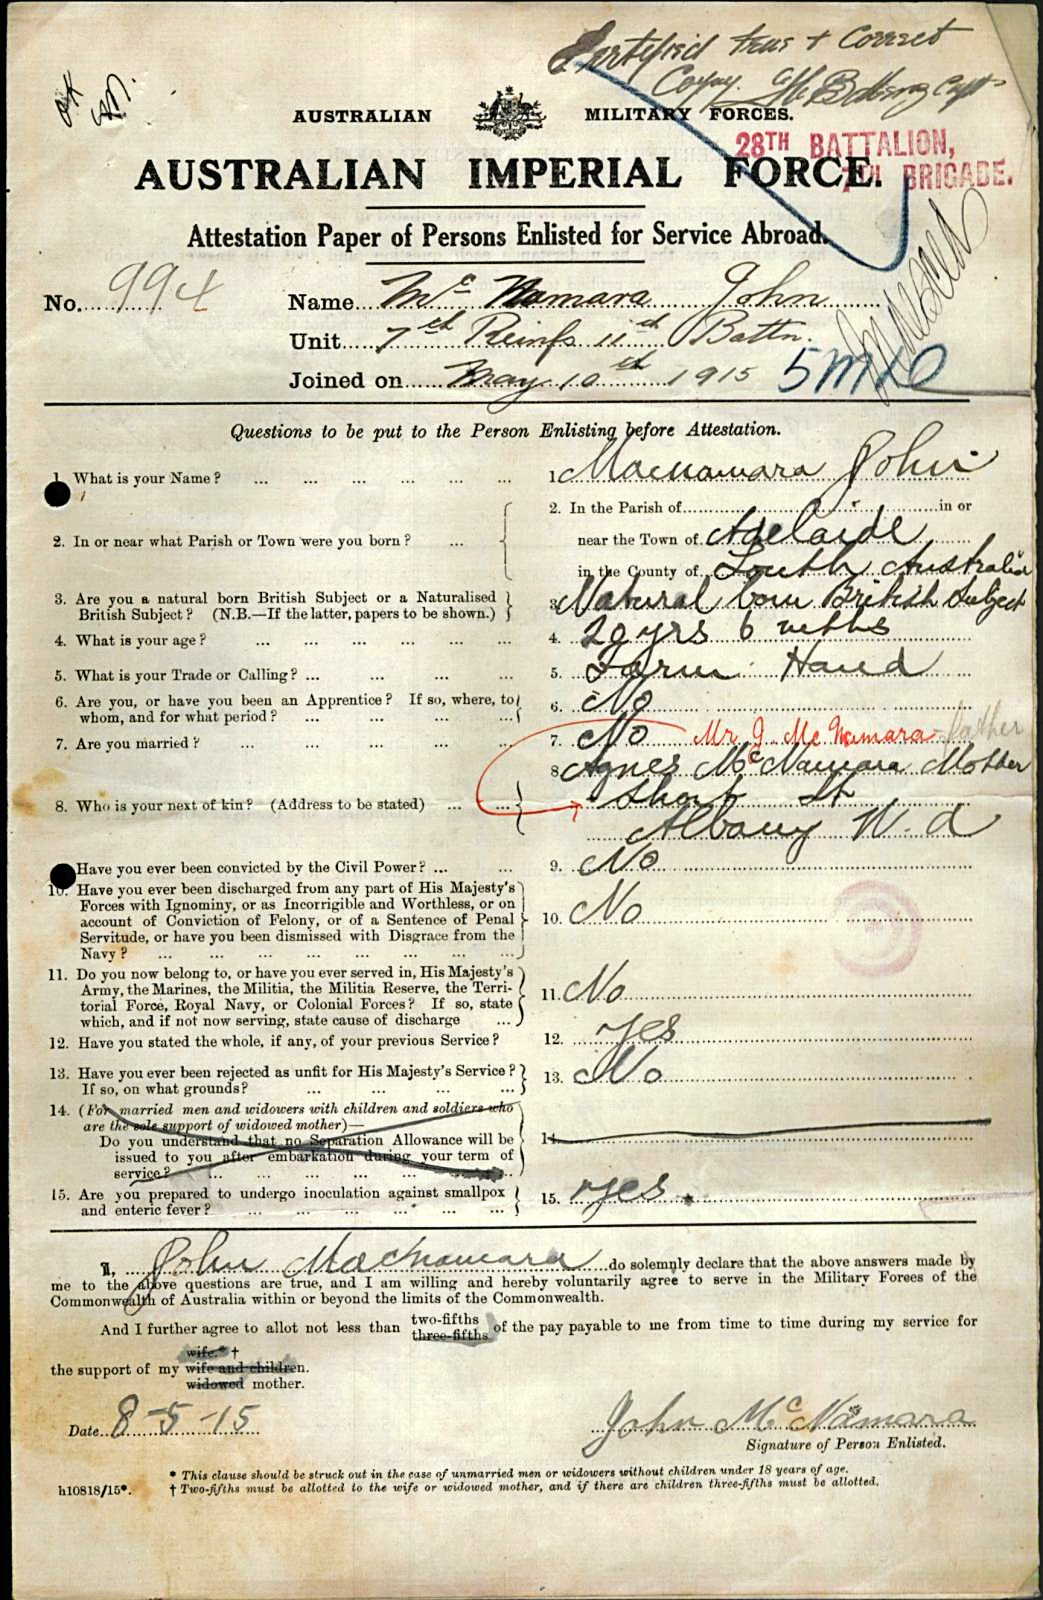 Certified true + Correct
Copy.
AUSTRALIAN MILITARY FORCES.
28TH BATTALION,
7TH BRIGADE.
AUSTRALIAN IMPERIAL FORCE.
Attestation Paper of Persons Enlisted for Service Abroad.
No. 994 Name Mc Namara John
Unit 7th Reinfs 11th Battn.
Joined on May 10th 1915
Questions to be put to the Person Enlisting before Attestation.
1. What is your Name? ... ... ... ... ... 1 Macnamara John
2. In or near what Parish or Town were you born? ... 2. In the Parish of in or
near the Town of Adelaide
in the County of South Australia
3. Are you a natural born British Subject or a Naturalised British Subject? (N.B.—If the latter, papers to be shown.) 3. Natural born British Subject
4. What is your age? ... ... ... ... ... 4. 20 yrs 6 mths
5. What is your Trade or Calling? ... ... ... ... 5. Farm Hand
6. Are you, or have you been an Apprentice? If so, where, to whom, and for what period? ... ... ... ... 6. No
7. Are you married? ... ... ... ... ... 7. No Mr J. McNamara father
8. Who is your next of kin? (Address to be stated) ... ... 8. Agnes McNamara Mother
Short St
Albany W.A
9. Have you ever been convicted by the Civil Power? ... ... 9. No
10. Have you ever been discharged from any part of His Majesty's
Forces with Ignominy, or as Incorrigible and Worthless, or on
account of Conviction of Felony, or of a Sentence of Penal
Servitude, or have you been dismissed with Disgrace from the
Navy? ... ... ... ... ... ... ... 10. No
11. Do you now belong to, or have you ever served in, His Majesty's
Army, the Marines, the Militia, the Militia Reserve, the Terri-
torial Force, Royal Navy, or Colonial Forces? If so, state
which, and if not now serving, state cause of discharge ... 11. No
12. Have you stated the whole, if any, of your previous Service? 12. yes
13. Have you ever been rejected as unfit for His Majesty's Service?
If so, on what grounds? ... ... ... ... 13. No
14. (For married men and widowers with children and soldiers who
are the sole support of widowed mother)—
Do you understand that no Separation Allowance will be
issued to you after embarkation during your term of
service? ... ... ... ... ... ... 14.
15. Are you prepared to undergo inoculation against smallpox
and enteric fever? ... ... ... ... ... ... 15. yes.
I, John MacNamara do solemnly declare that the above answers made by
me to the above questions are true, and I am willing and hereby voluntarily agree to serve in the Military Forces of the
Commonwealth of Australia within or beyond the limits of the Commonwealth.
And I further agree to allot not less than two-fifths three-fifths of the pay payable to me from time to time during my service for
the support of my wife.* † wife and children. widowed mother.
Date 8-5-15 John McNamara
Signature of Person Enlisted.
* This clause should be struck out in the case of unmarried men or widowers without children under 18 years of age.
h10818/15*. † Two-fifths must be allotted to the wife or widowed mother, and if there are children three-fifths must be allotted.